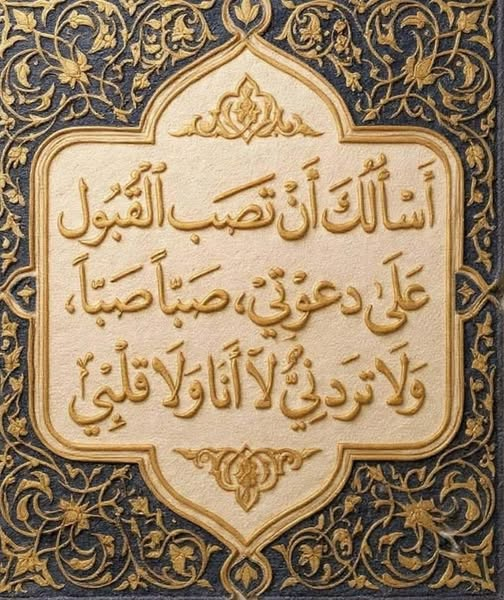 أَسْأَلُكَ أَنْ تَصَب الْقَبُول
عَلَى دعوْتي، صَبّاً صَبّاً،
وَلَا تَردَنِيُّ لَا أَنَا وَلَا قَلْبِيْ